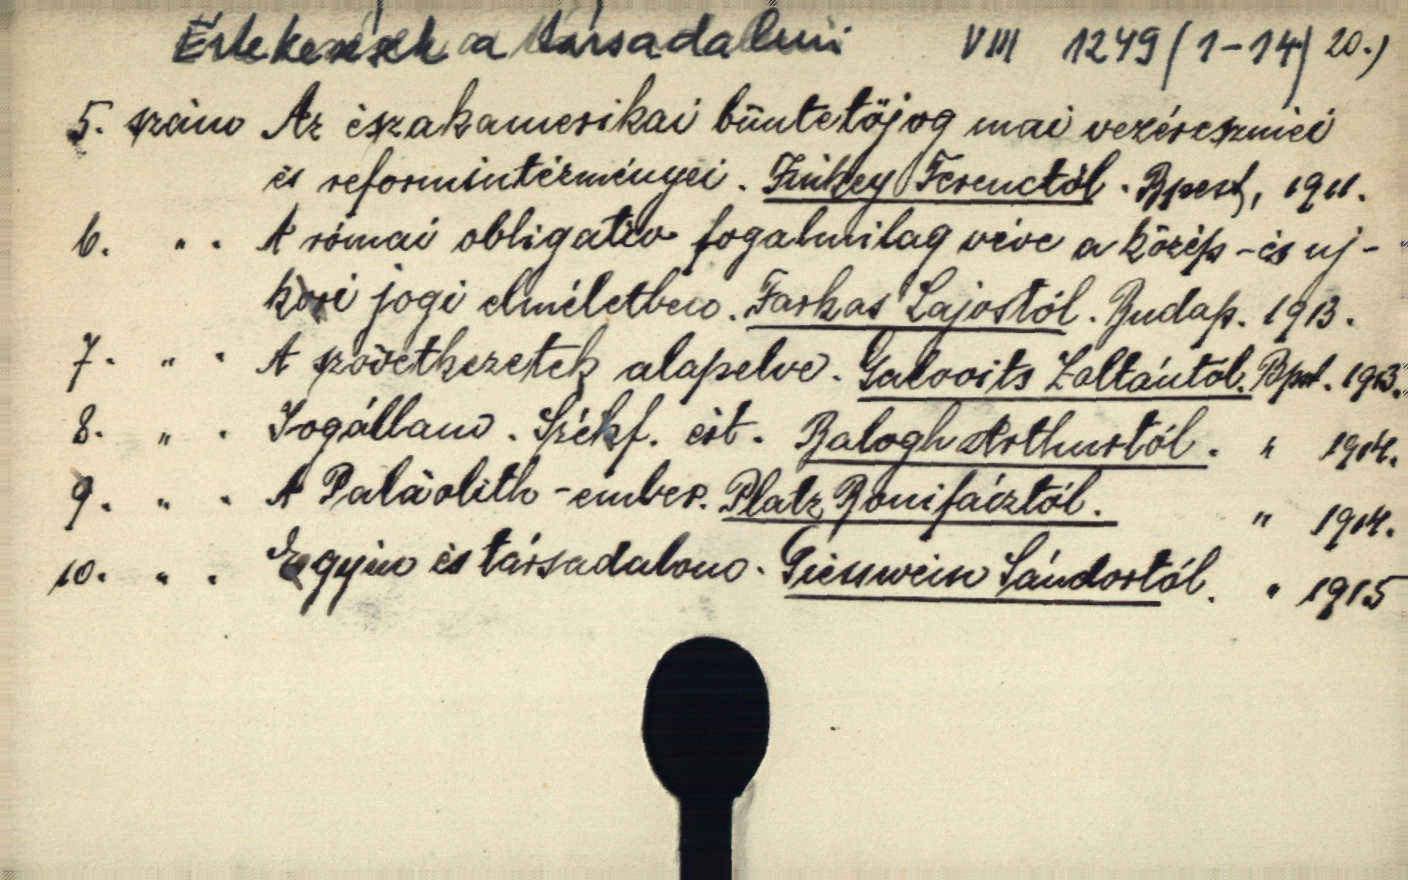 Értekezések a társadalmi VIII 1249 (1-14) 20.)
5. szám Az északamerikai büntetőjog mai vezéreszméi
és reformintézményei. Finkey Ferenctól. Bpest, 1911.
6. " . A római obligatio fogalmilag véve a közép-és uj-
kori jogi elméletben. Farkas Lajostól. Budap. 1913.
7. " . A szövetkezetek alapelve. Galovits Zoltántól. Bpest. 1913.
8. " . Jogállam. Székf. ért. Balogh Arthurtól. " 1914.
9. " . A Paläolith-ember. Platz Bonifácztól. " 1914.
10. " . Egyén és társadalom. Giesswein Sándortól. " 1915